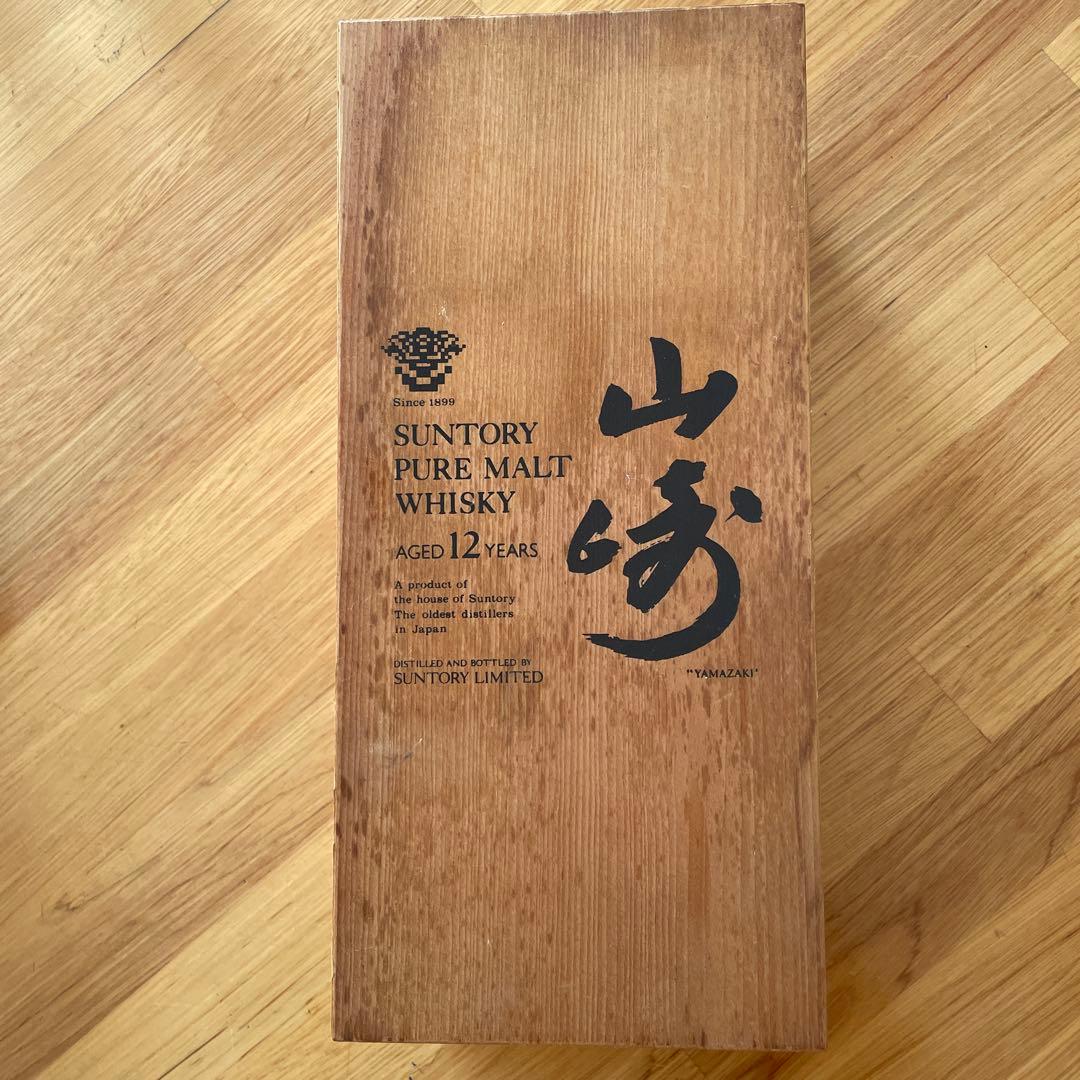 Since 1899
SUNTORY
PURE MALT
WHISKY
AGED 12 YEARS
A product of
the house of Suntory
The oldest distillers
in Japan
DISTILLED AND BOTTLED BY
SUNTORY LIMITED
山崎
"YAMAZAKI"